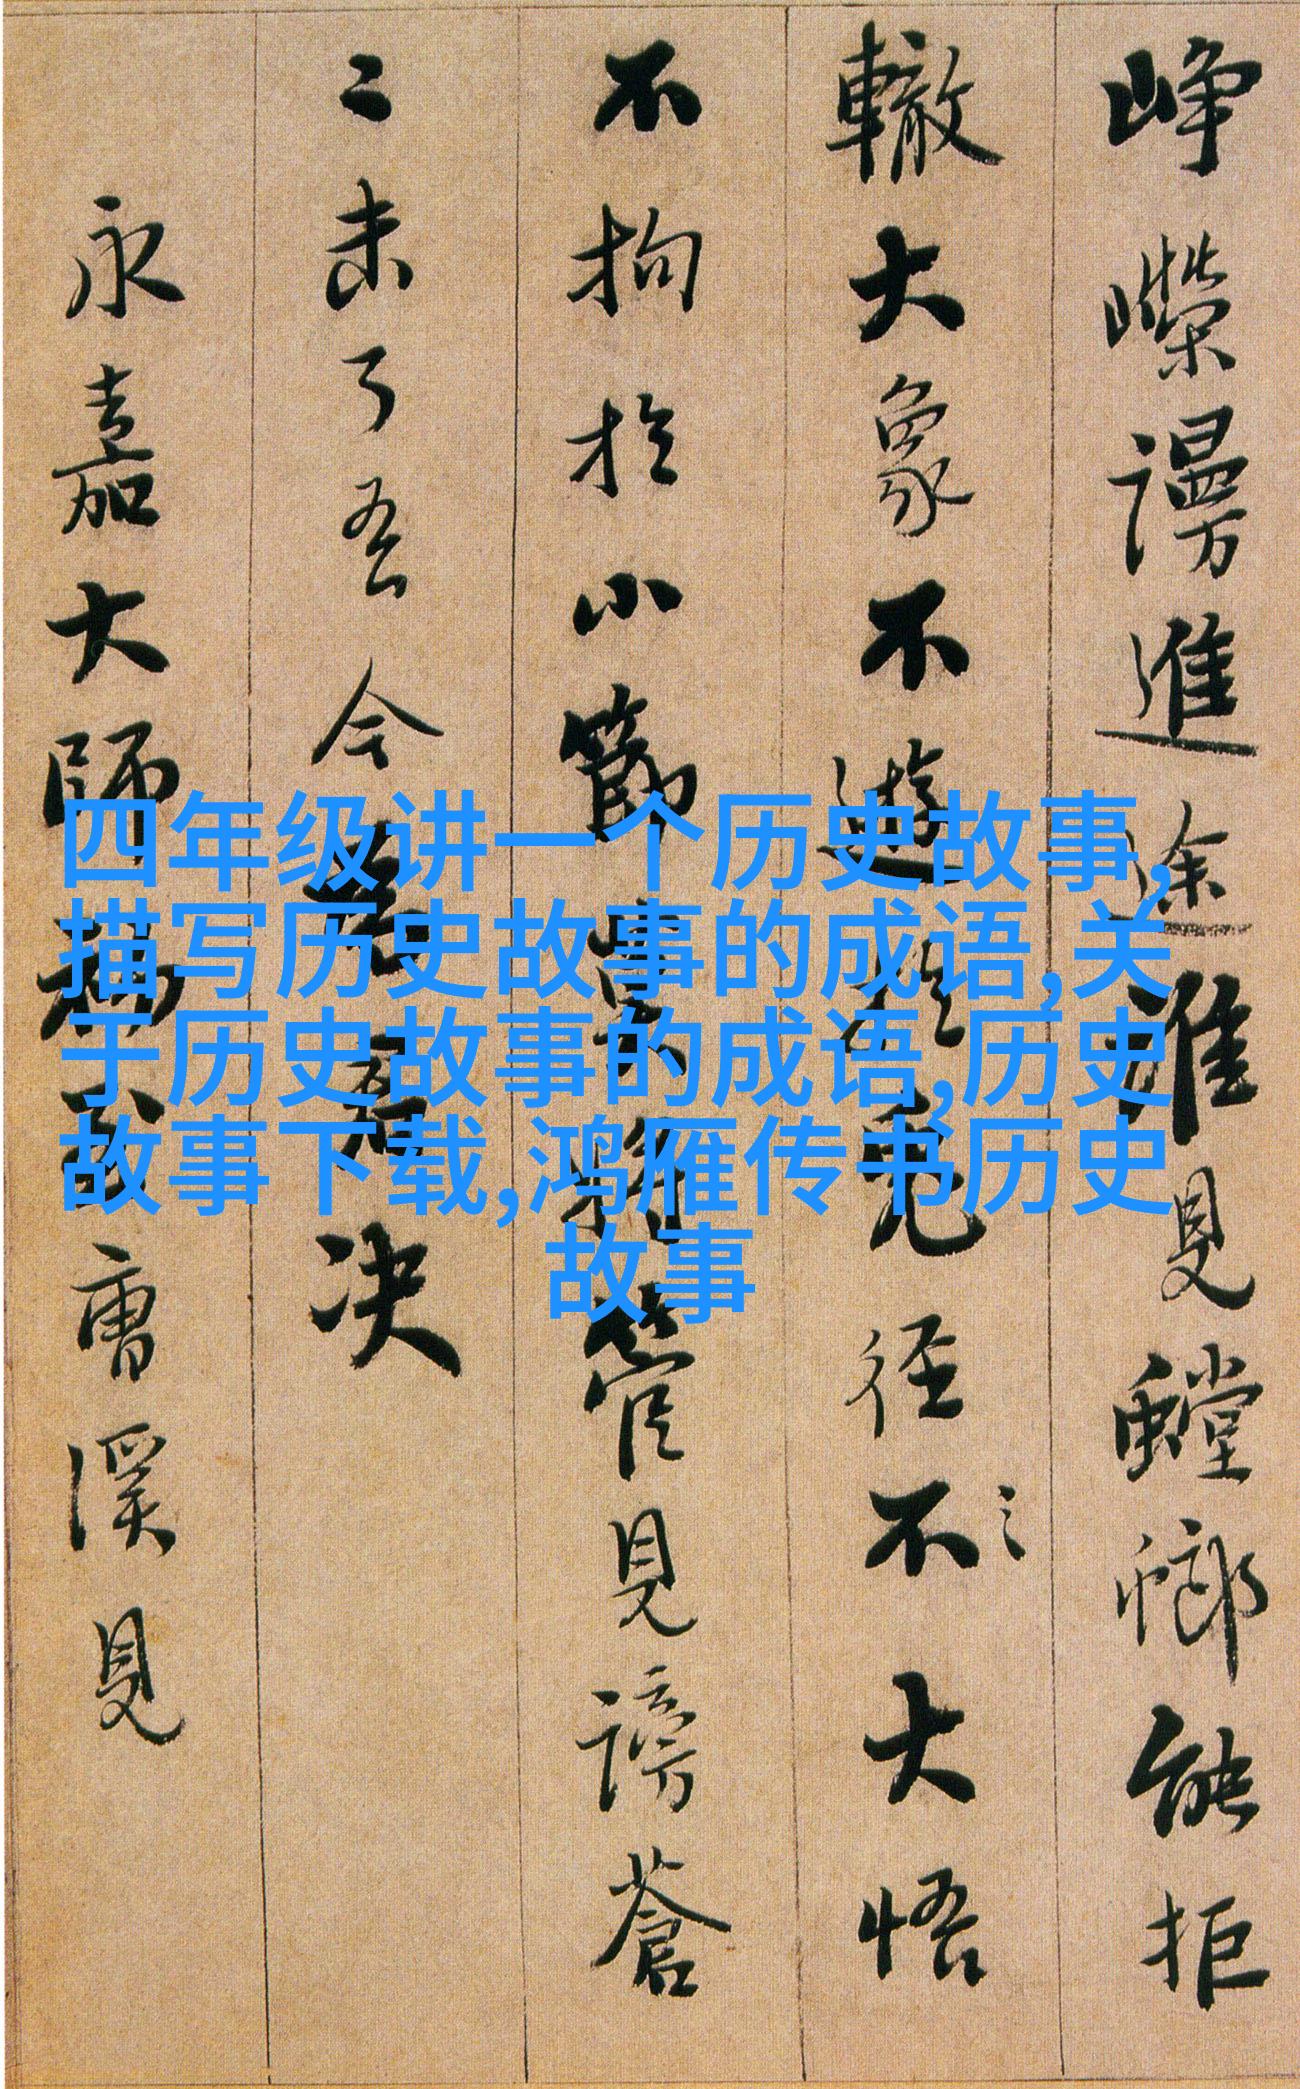 四年级讲一个历史故事,
描写历史故事的成语,关
于历史故事的成语,历史
故事下载,鸿雁传书历史
故事
崢嶸謾進途誰見螳螂能拒
轍大象不遊於兔径不大悟
不拘於小節莫將管見謗蒼
〻未了吾今為君决
永嘉大師曹溪見